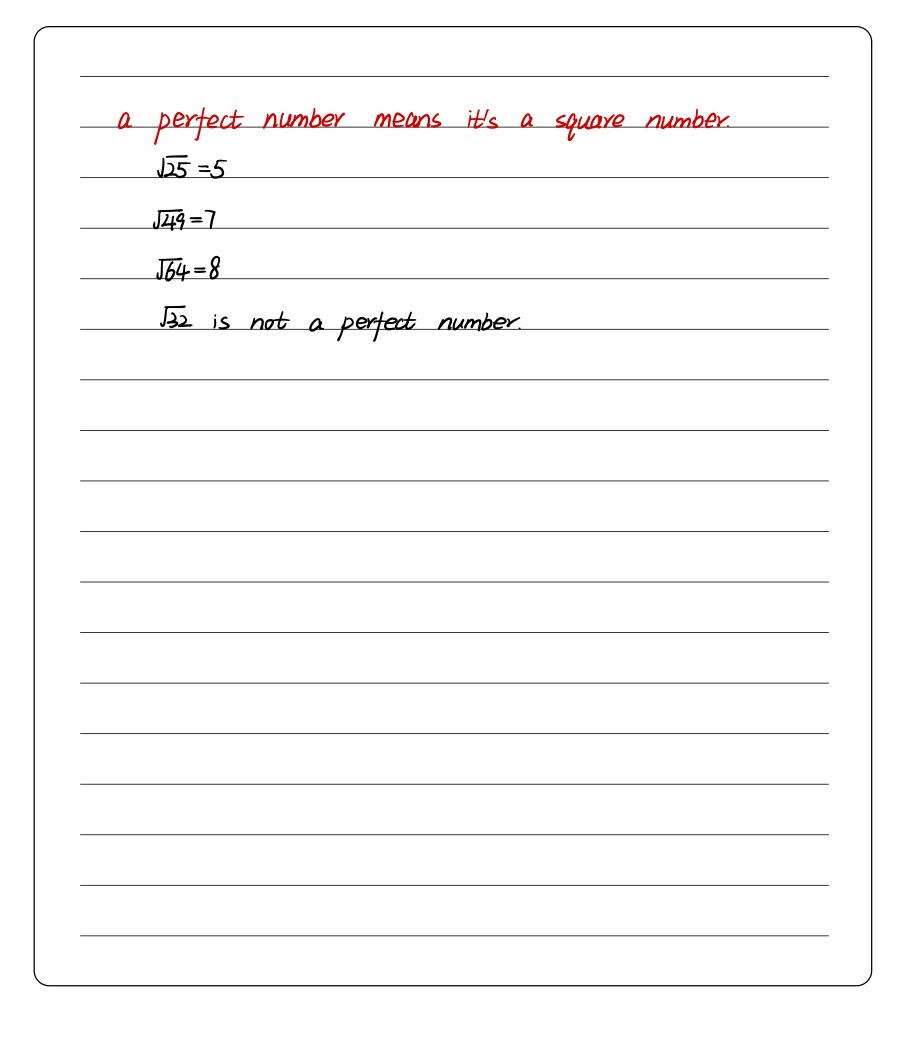 a perfect number means it's a square number.
√25 = 5
√49 = 7
√64 = 8
√32 is not a perfect number.